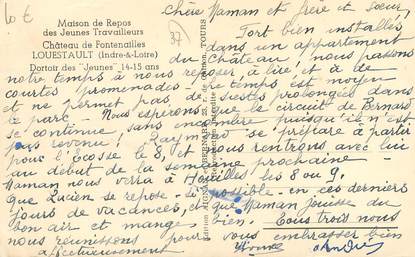 10€
37
Maison de Repos
des Jeunes Travailleurs
Château de Fontenailles
LOUESTAULT (Indre-&-Loire)
Dortoir des "Jeunes" 14-15 ans
Chère Maman et frère et sœur,
Fort bien installés
dans un appartement
du Château, nous passons
notre temps à nous reposer, à lire, et à de
courtes promenades - le temps est moyen
et ne permet pas de siestes prolongées dans
le parc - Nous espérons que le circuit de Bernard
se continue sans encombre puisqu'il n'est
pas revenu! Raymond se prépare à partir
pour l'Écosse le 8, et nous rentrons avec lui
au début de la semaine prochaine -
Maman nous verra à Houilles les 8 ou 9.
que Lucien se repose si possible en ces derniers
jours de vacances, et que Maman jouisse du
bon air et mange bien. Tous trois nous
nous réunissons pour vous embrasser bien
affectueusement
Yvonne André
TOURS